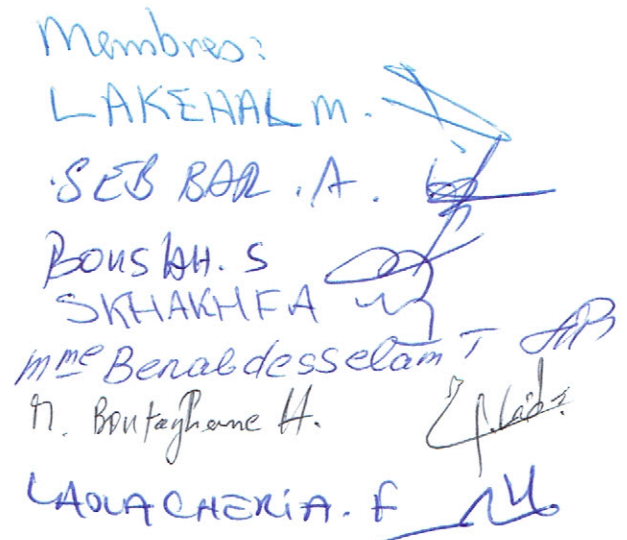 Membres:
LAKEHAL M.
SEBBAR . A .
BOUSLAH. S
SKHAKHFA
Mme Benabdesselam T
M. Boutaghane H.
LAOUACHERIA. F